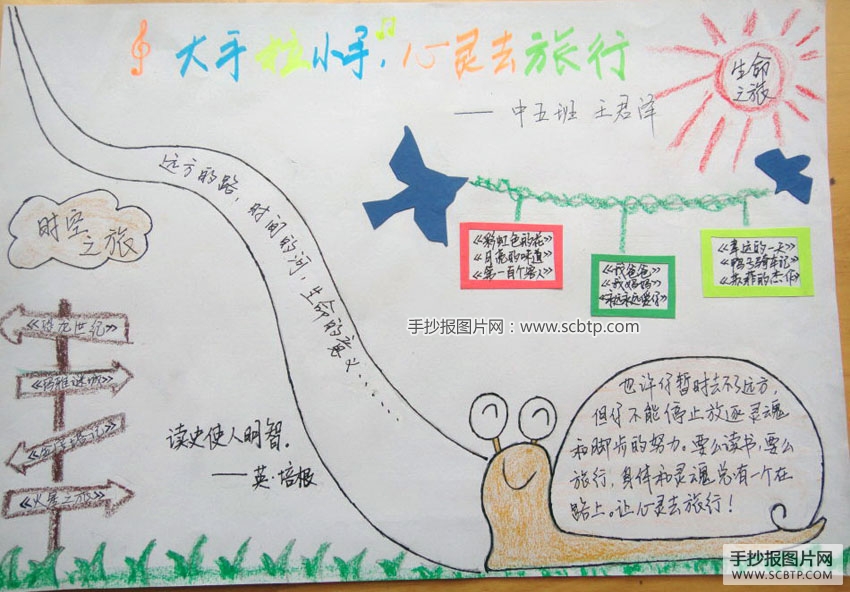 大手拉小手,心灵去旅行
——中五班 王君泽
生命
之旅
远方的路,时间的河,生命的意义......
时空
之旅
《彩虹色的花》
《月亮的味道》
《第一百个客人》
《我爸爸》
《我妈妈》
《永远永远爱你》
《幸运的一天》
《鸭子骑车记》
《苏菲的杰作》
手抄报图片网:www.scbtp.com
《恐龙世纪》
《玛雅谜城》
《火星之旅》
读史使人明智。
——英·培根
也许仔暂时去不了远方,
但仔不能停止放逐灵魂
和脚步的努力。要么读书,要么
旅行,身体和灵魂总有一个在
路上。让心灵去旅行!
手抄报图片网
WWW.SCBTP.COM